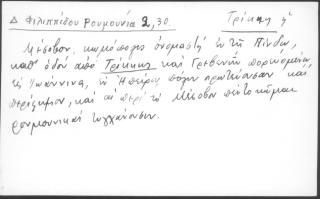 Δ Φιλιππίδου Ρουμουνία 2, 30. Τρίκκης ἡ
Μέσοβον, κωμόπολις ὀνομαστὴ ἐν τῇ Πίνδῳ,
καθ' ὁδὸν ἀπὸ Τρίκκης καὶ Γρεβενῶν πορευομένῳ
εἰς Ἰωάννινα, ἐν Ἠπείρῳ πόλιν πρωτεύουσαν καὶ
περίφημον, καὶ αἱ περὶ τὸ Μέσοβον πέντε κῶμαι
ρουμουνικαὶ τυγχάνουσιν.